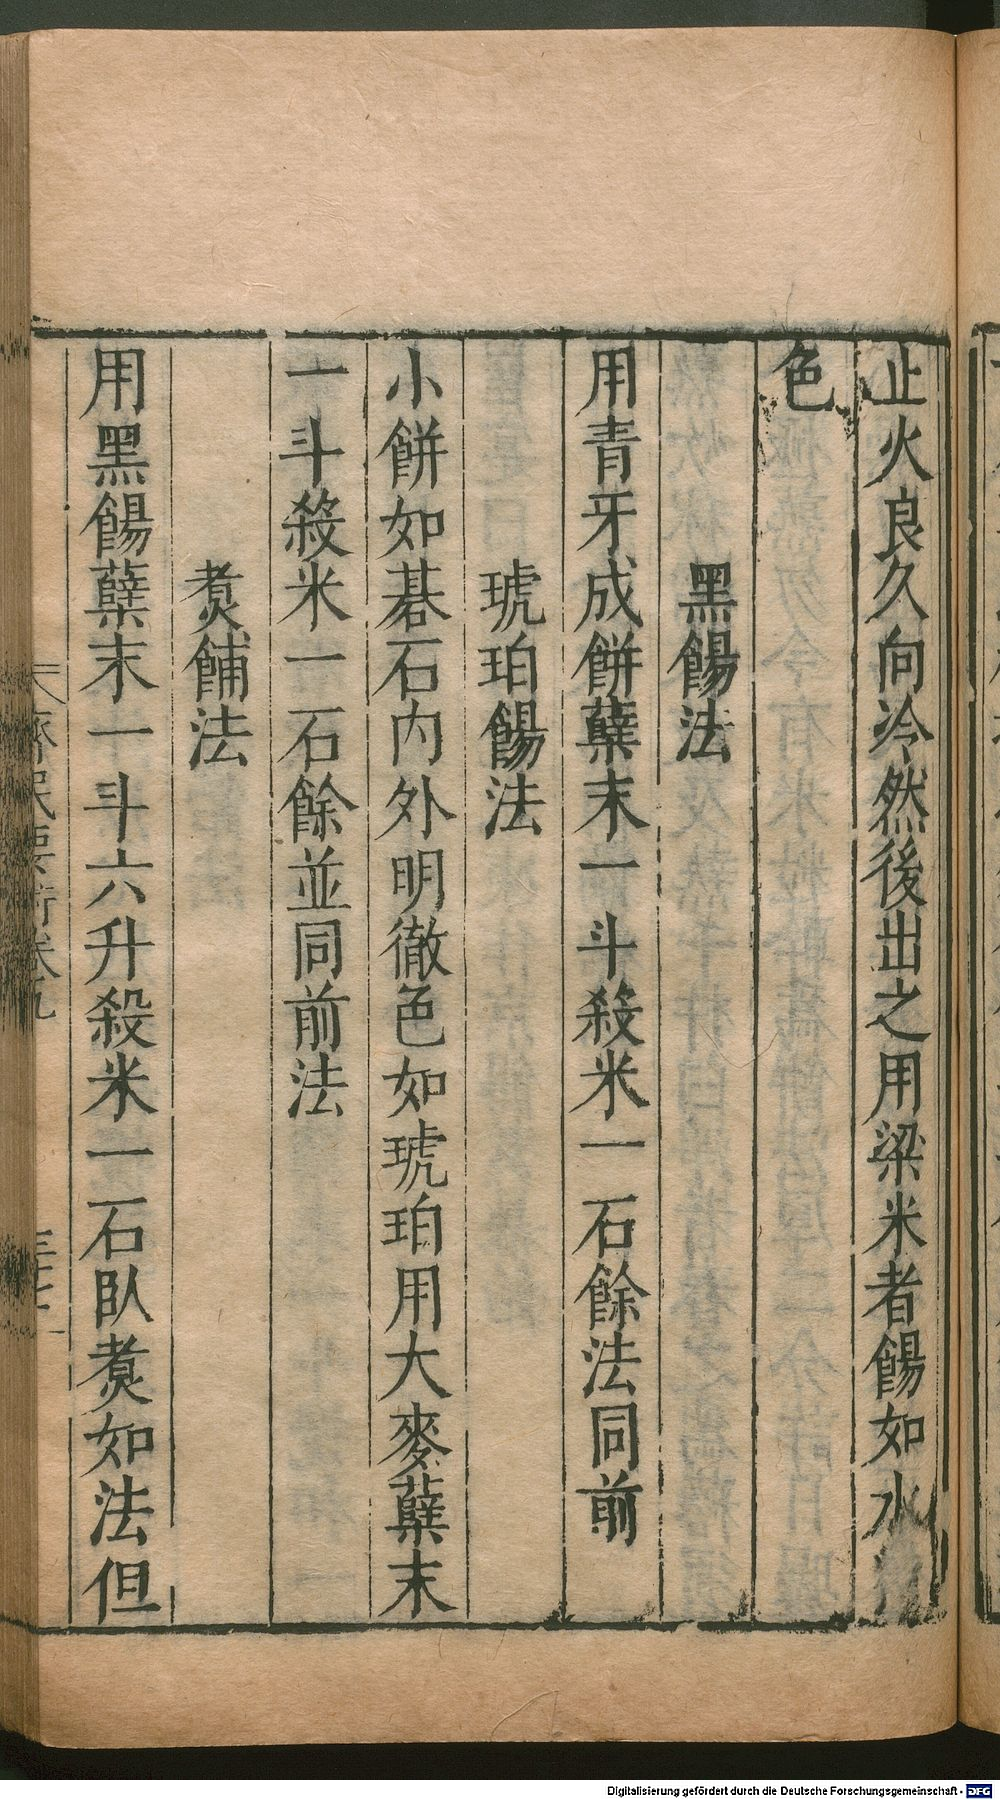 止火良久向冷然後出之用梁米者餳如水
色
黑餳法
用青牙成餅糱末一斗殺米一石餘法同前
琥珀餳法
小餅如碁石内外明徹色如琥珀用大麥糱末
一斗殺米一石餘並同前法
煑餔法
用黑餳糱末一斗六升殺米一石臥煑如法但
齊民要術卷九
Digitalisierung gefördert durch die Deutsche Forschungsgemeinschaft - DFG